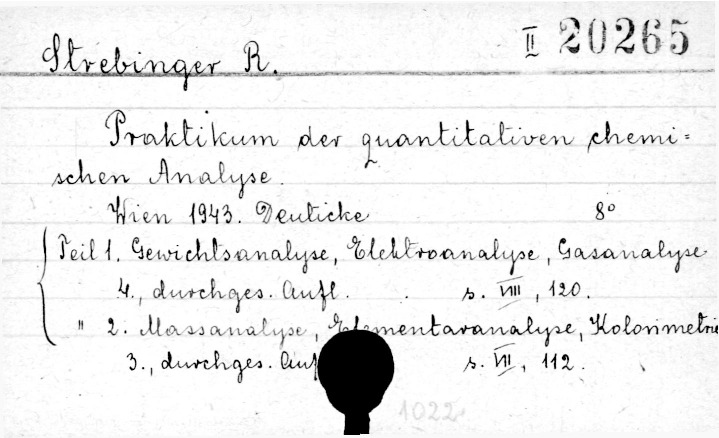 Strebinger R. II 20265
Praktikum der quantitativen chemi=
schen Analyse.
Wien 1943. Deuticke 8°
Teil 1. Gewichtsanalyse, Elektroanalyse, Gasanalyse
4., durchges. Aufl. s. VIII, 120.
" 2. Massanalyse, Elementaranalyse, Kolorimetrie
3., durchges. Auf s. VII, 112.
1022